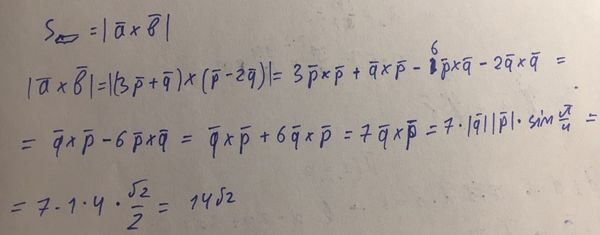 S▱ = |a̅ × b̅|
|a̅ × b̅| = |(3p̅ + q̅) × (p̅ - 2q̅)| = 3p̅ × p̅ + q̅ × p̅ - 6p̅ × q̅ - 2q̅ × q̅ =
= q̅ × p̅ - 6p̅ × q̅ = q̅ × p̅ + 6q̅ × p̅ = 7q̅ × p̅ = 7 · |q̅| |p̅| · sin π/4 =
= 7 · 1 · 4 · √2/2 = 14√2